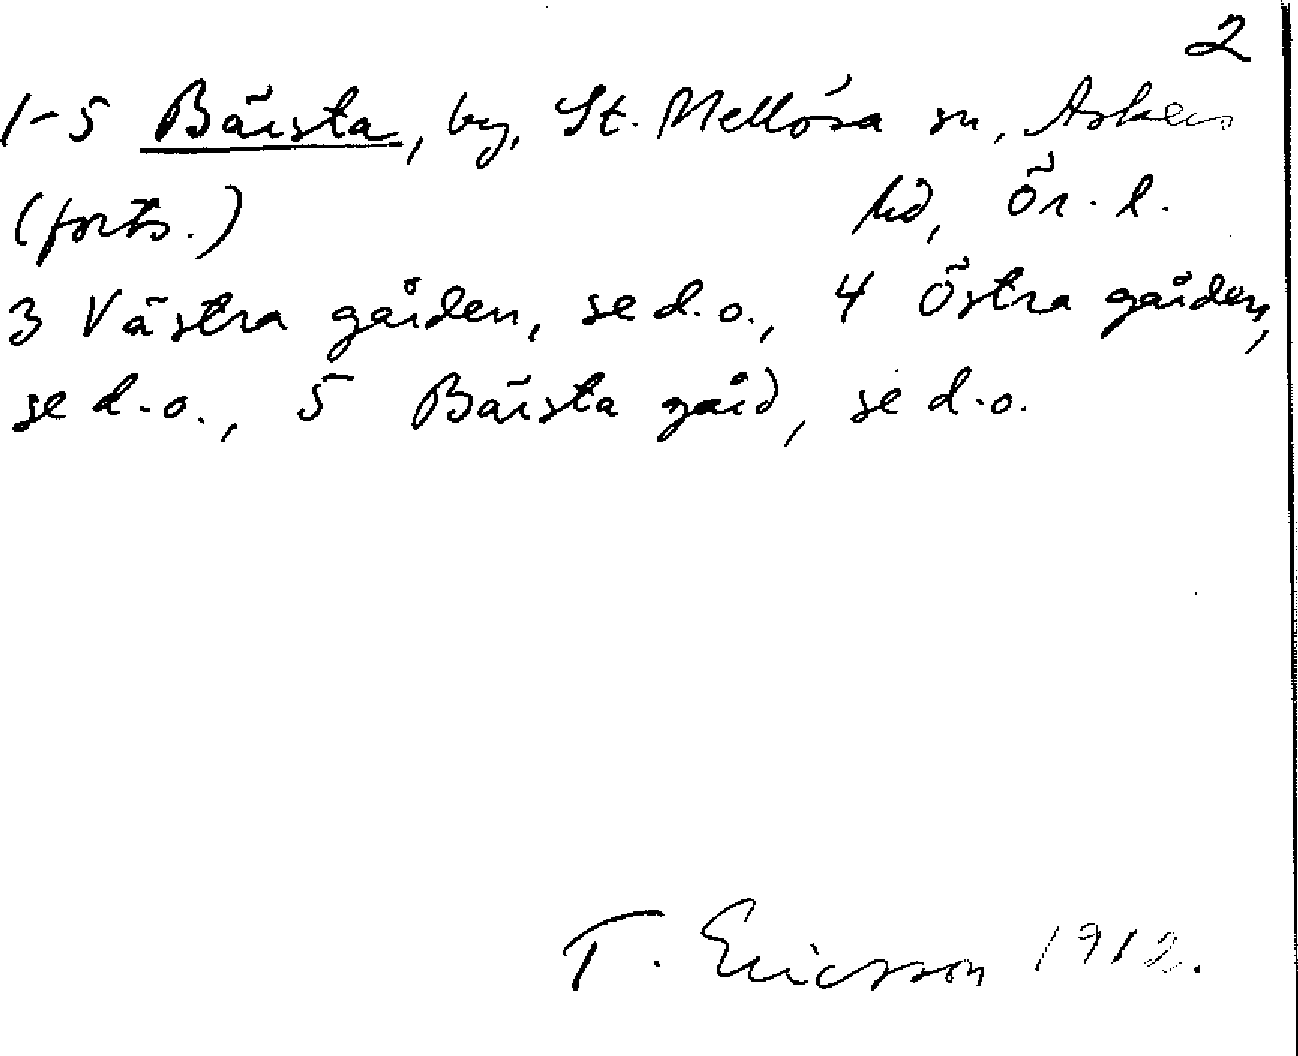 2
1-5 Bärsta, by, St. Mellösa sn, Askers
(forts.) hd, Ör. l.
3 Västra gården, se d.o., 4 Östra gården,
se d.o., 5 Bärsta gård, se d.o.
T. Ericsson 1912.